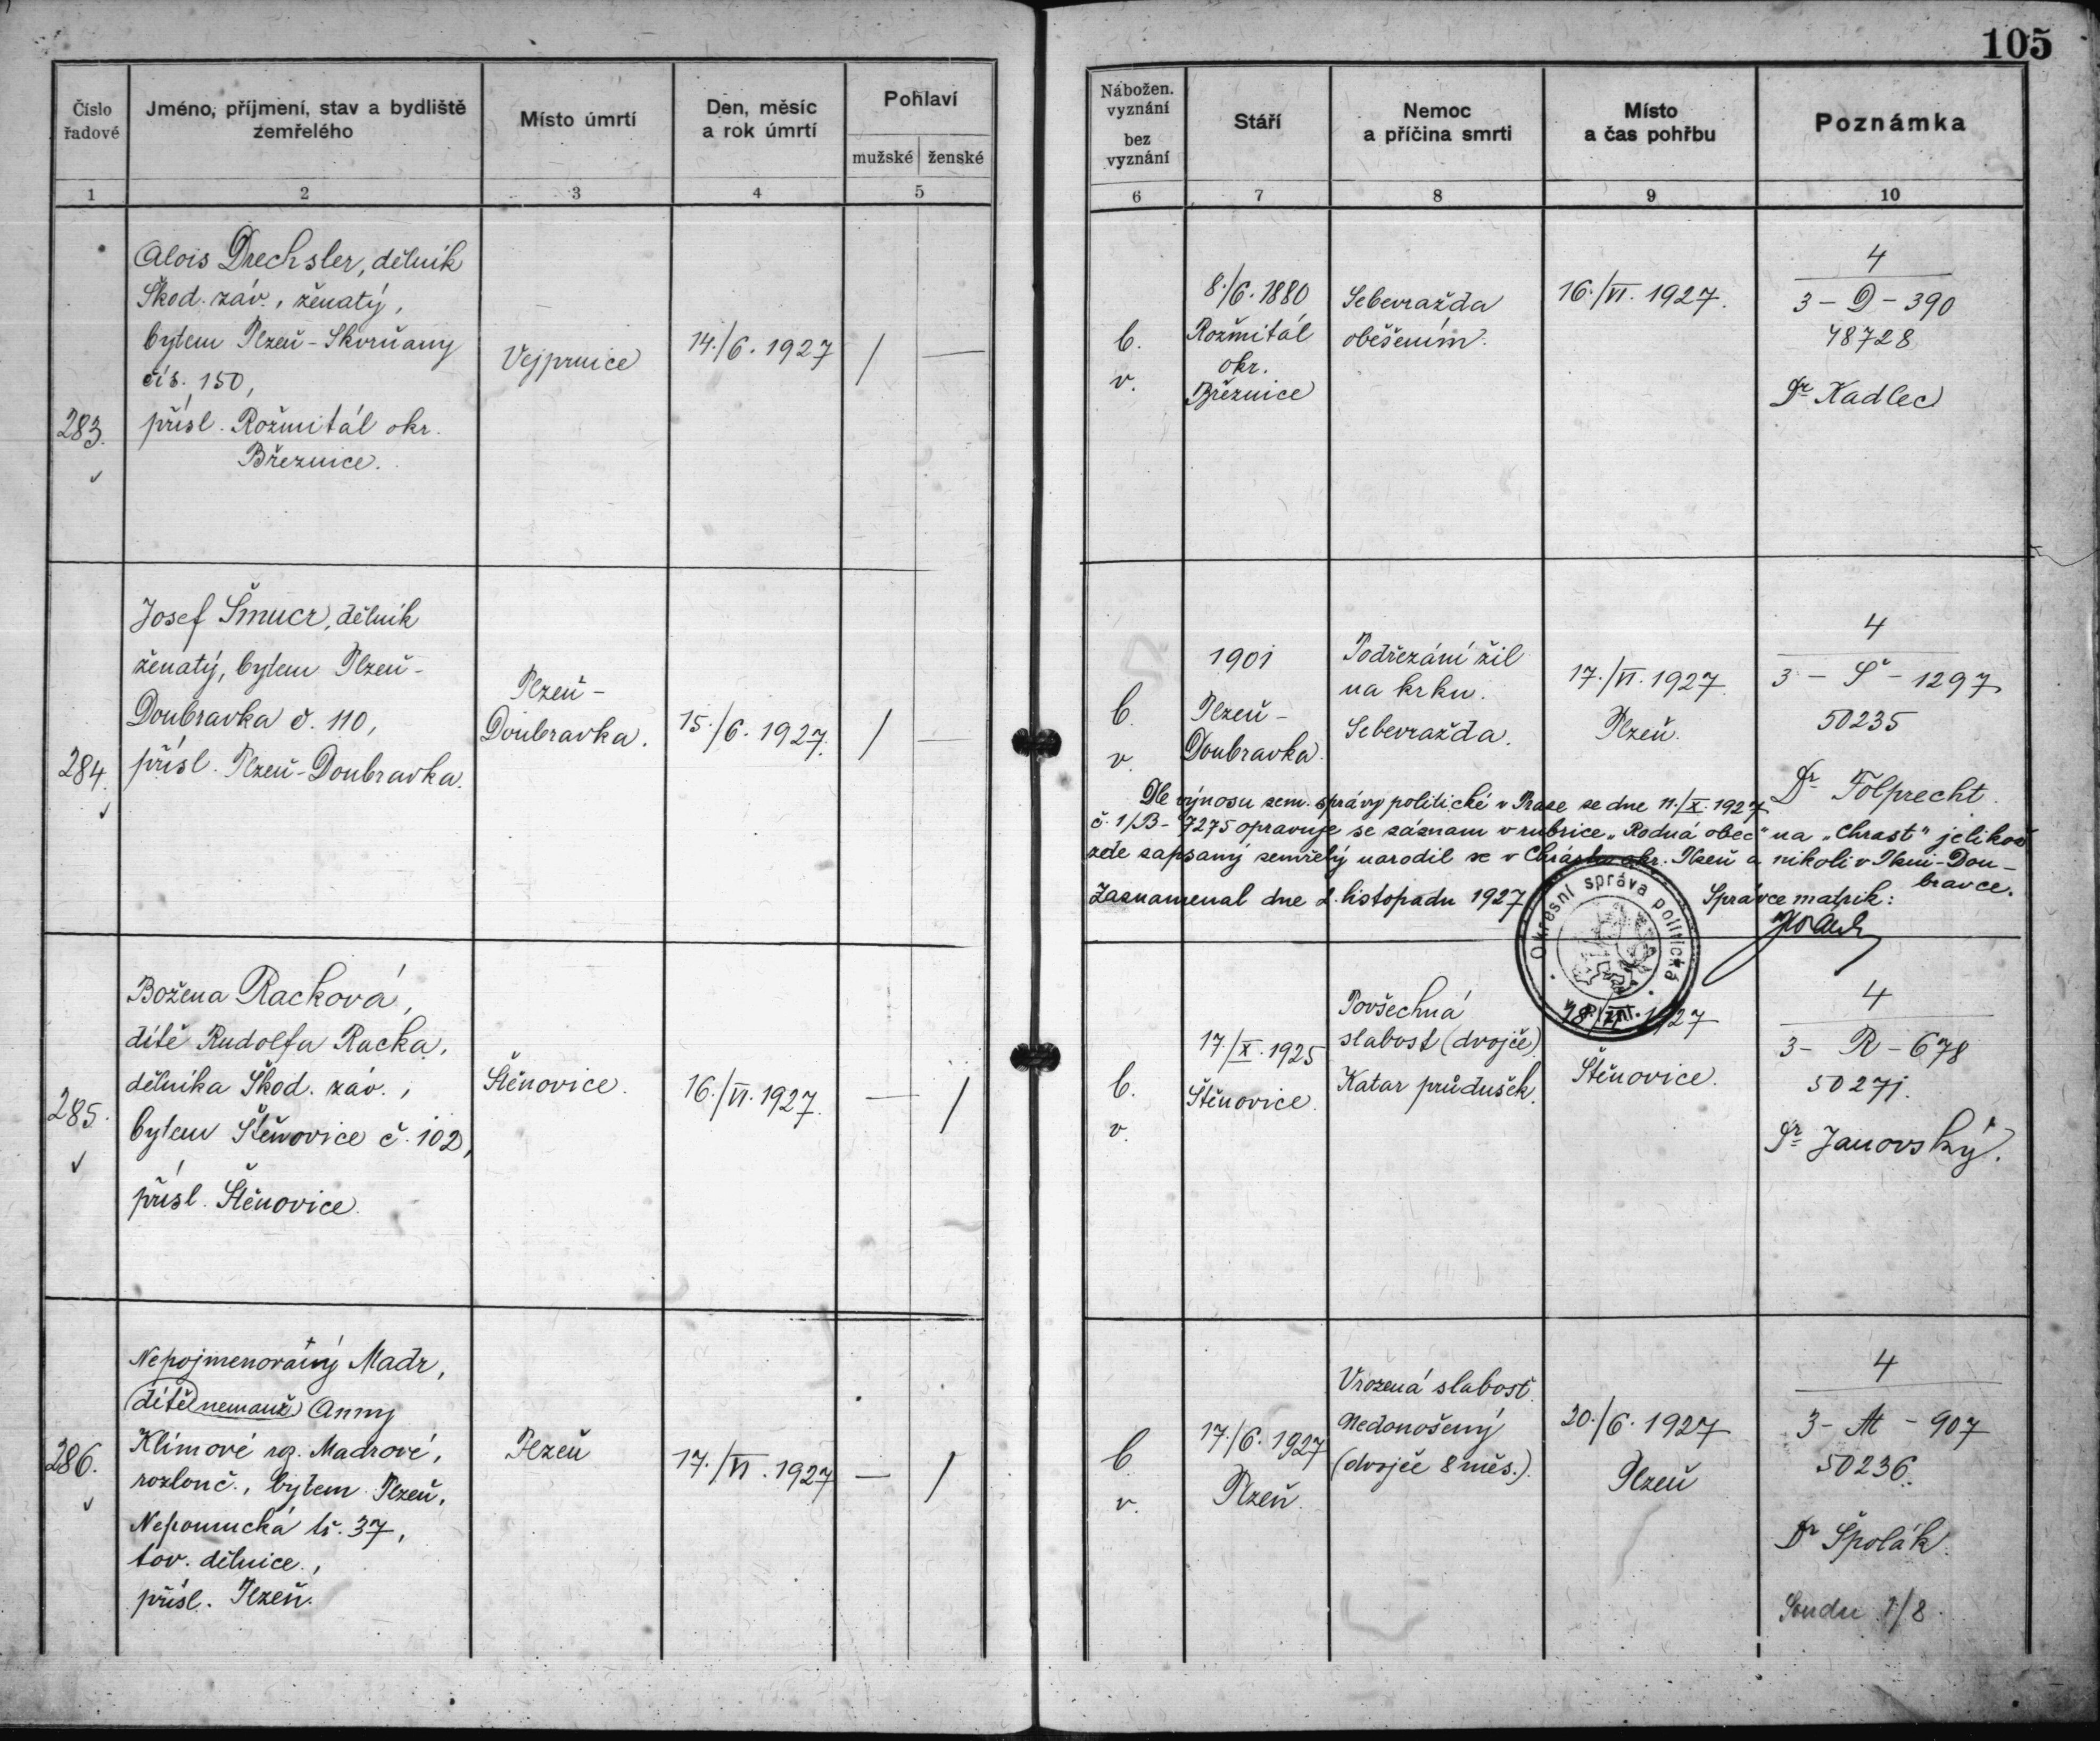 105
Číslo
řadové
Jméno, příjmení, stav a bydliště
zemřelého
Místo úmrtí
Den, měsíc
a rok úmrtí
Pohlaví
mužské ženské
Nábožen.
vyznání
bez
vyznání
Stáří
Nemoc
a příčina smrti
Místo
a čas pohřbu
Poznámka
1 2 3 4 5 6 7 8 9 10
283.
Alois Drechsler, dělník
Škod. záv., ženatý,
bytem Plzeň-Skvrňany
čís. 150,
přísl. Rožmitál okr.
Březnice.
Vejprnice
14./6. 1927
/ —
b.
v.
8./6. 1880
Rožmitál
okr.
Březnice
Sebevražda
oběšením.
16./VI. 1927.
4
3 - D - 390
48728
Dr Kadlec
284.
Josef Šmucr, dělník
ženatý, bytem Plzeň-
Doubravka č. 110,
přísl. Plzeň-Doubravka.
Plzeň-
Doubravka.
15./6. 1927.
/ —
b.
v.
1901
Plzeň-
Doubravka.
Podřezání žil
na krku.
Sebevražda.
17./VI. 1927.
Plzeň.
4
3 - Š - 1297
50235
Dr Folprecht.
Dle výnosu zem. správy politické v Praze ze dne 11./X. 1927
č. 1/B- 7275 opravuje se záznam v rubrice „Rodná obec" na „Chrast" jelikož
zde zapsaný zemřelý narodil se v Chrástu okr. Plzeň a nikoli v Plzni-Dou-
bravce.
Zaznamenal dne 2. listopadu 1927
Správce matrik:
Okresní správa politická
v Plzni.
285.
Božena Racková,
dítě Rudolfa Racka,
dělníka Škod. záv.,
bytem Štěnovice č. 102,
přísl. Štěnovice.
Štěnovice.
16./VI. 1927.
— /
b.
v.
17./X. 1925
Štěnovice.
Povšechná
slabost (dvojče)
Katar průdušek.
18./VI. 1927
Štěnovice.
4
3 - R - 678
50271.
Dr Janovský.
286.
Nepojmenovaný Madr,
dítě nemanž. Anny
Klímové roz. Madrové,
rozlouč., bytem Plzeň,
Nepomucká tř. 37,
tov. dělnice.,
přísl. Plzeň.
Plzeň
17./VI. 1927
— /
b.
v.
17./6. 1927
Plzeň.
Vrozená slabost.
Nedonošený
(dvojče 8 měs.).
20./6. 1927
Plzeň
4
3 - M - 907
50236.
Dr Špolák.
Soudu 1/8.